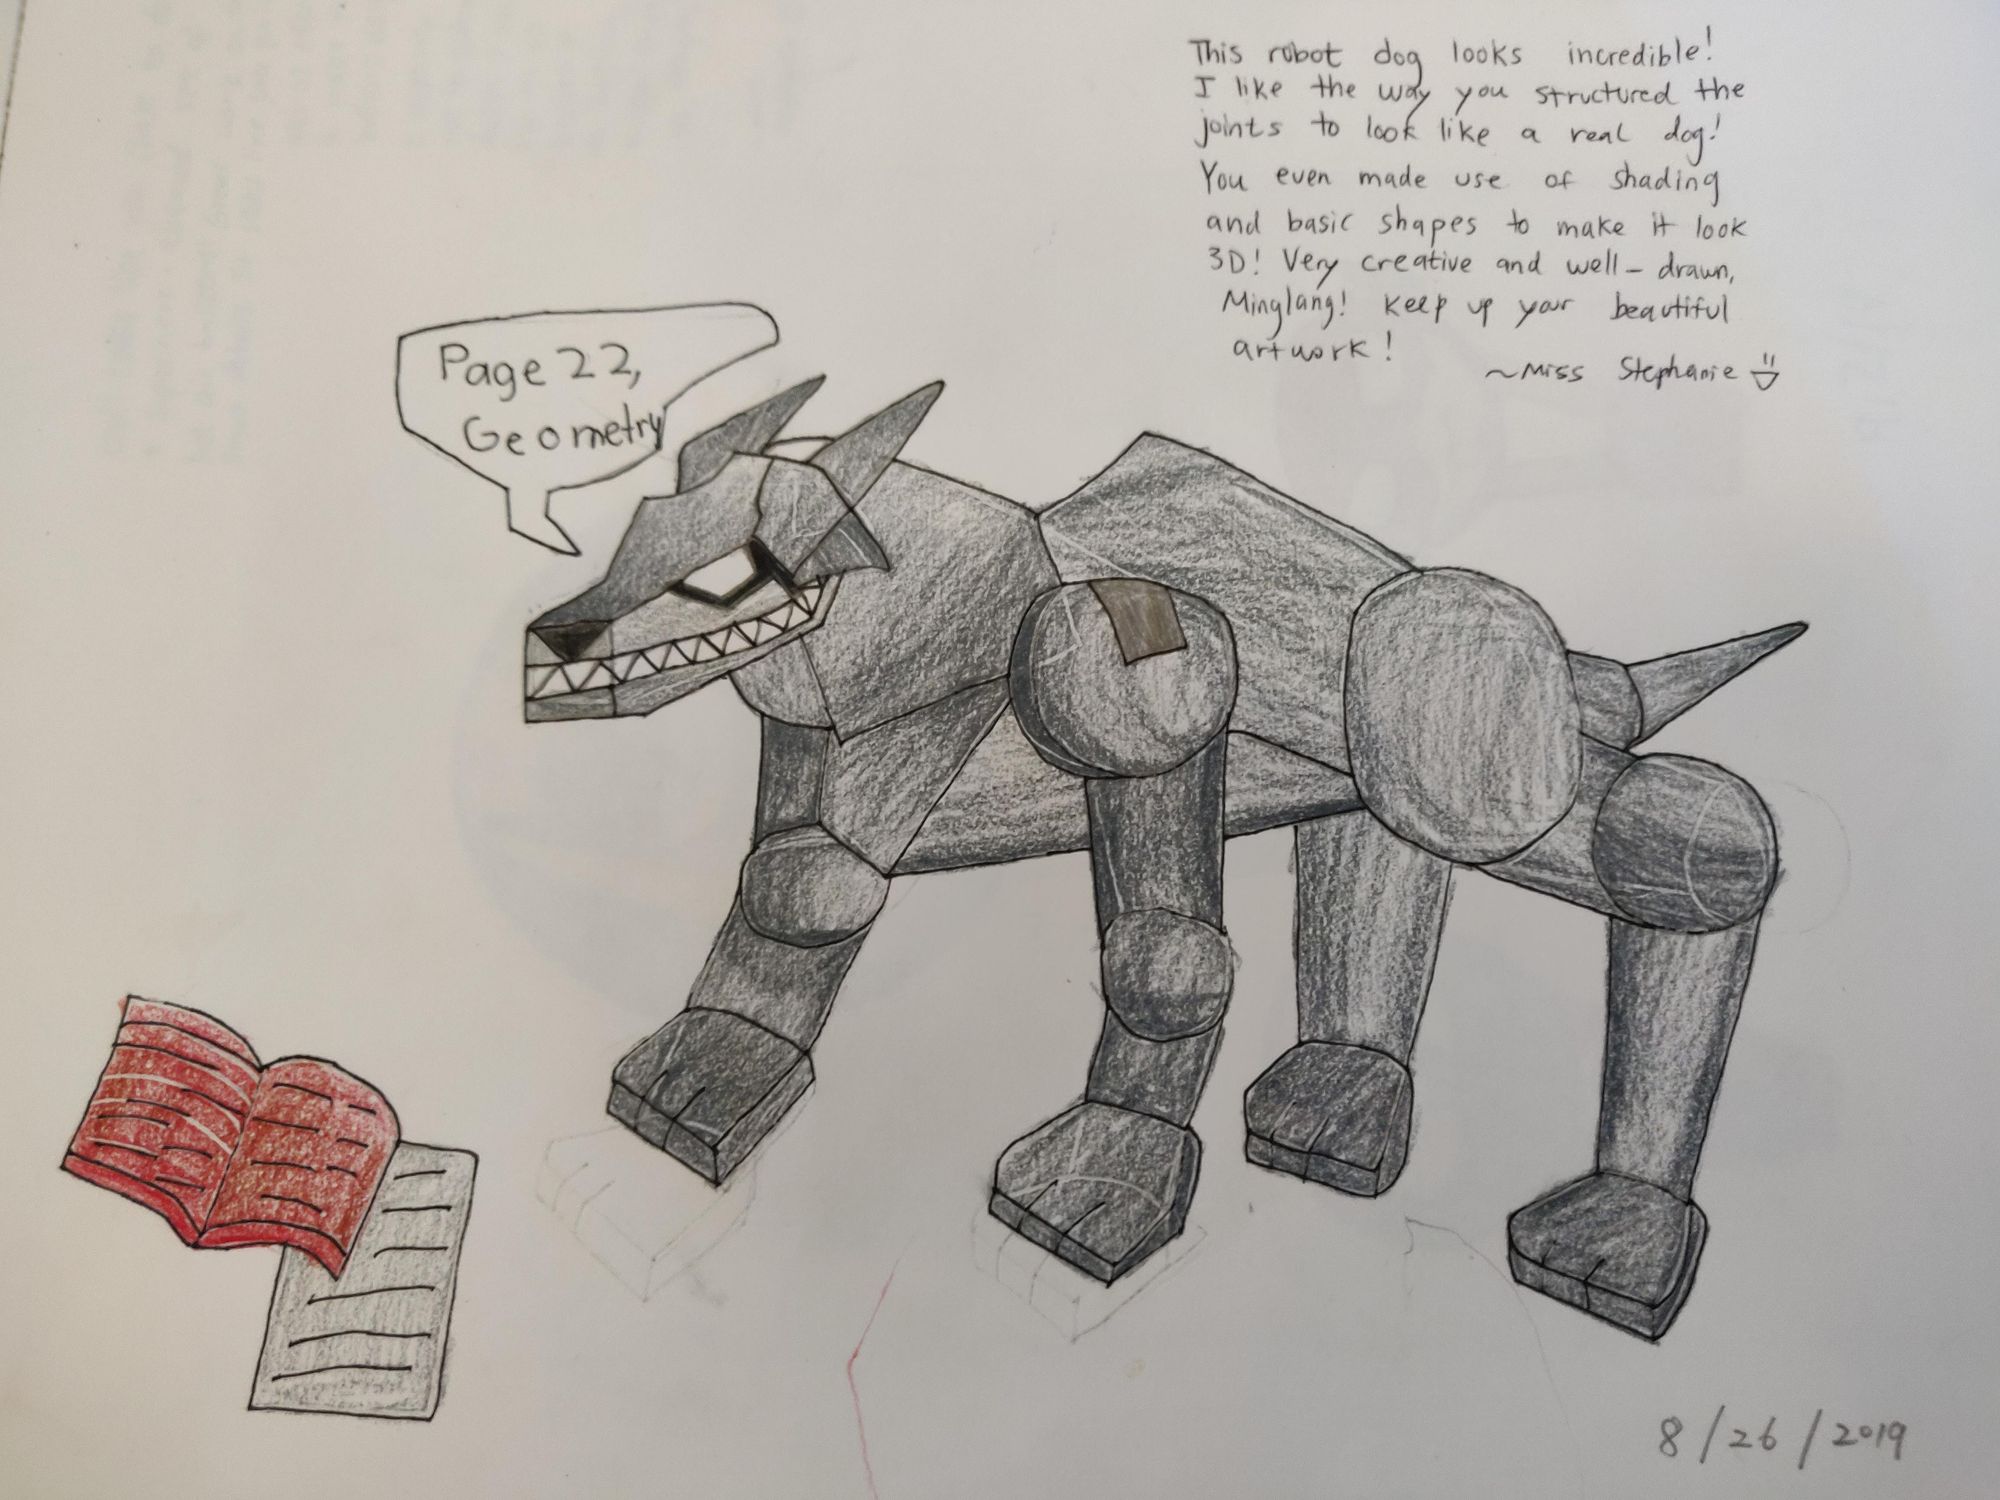 This robot dog looks incredible!
I like the way you structured the
joints to look like a real dog!
You even made use of shading
and basic shapes to make it look
3D! Very creative and well-drawn,
Minglang! Keep up your beautiful
artwork!
~Miss Stephanie
Page 22,
Geometry
8/26/2019